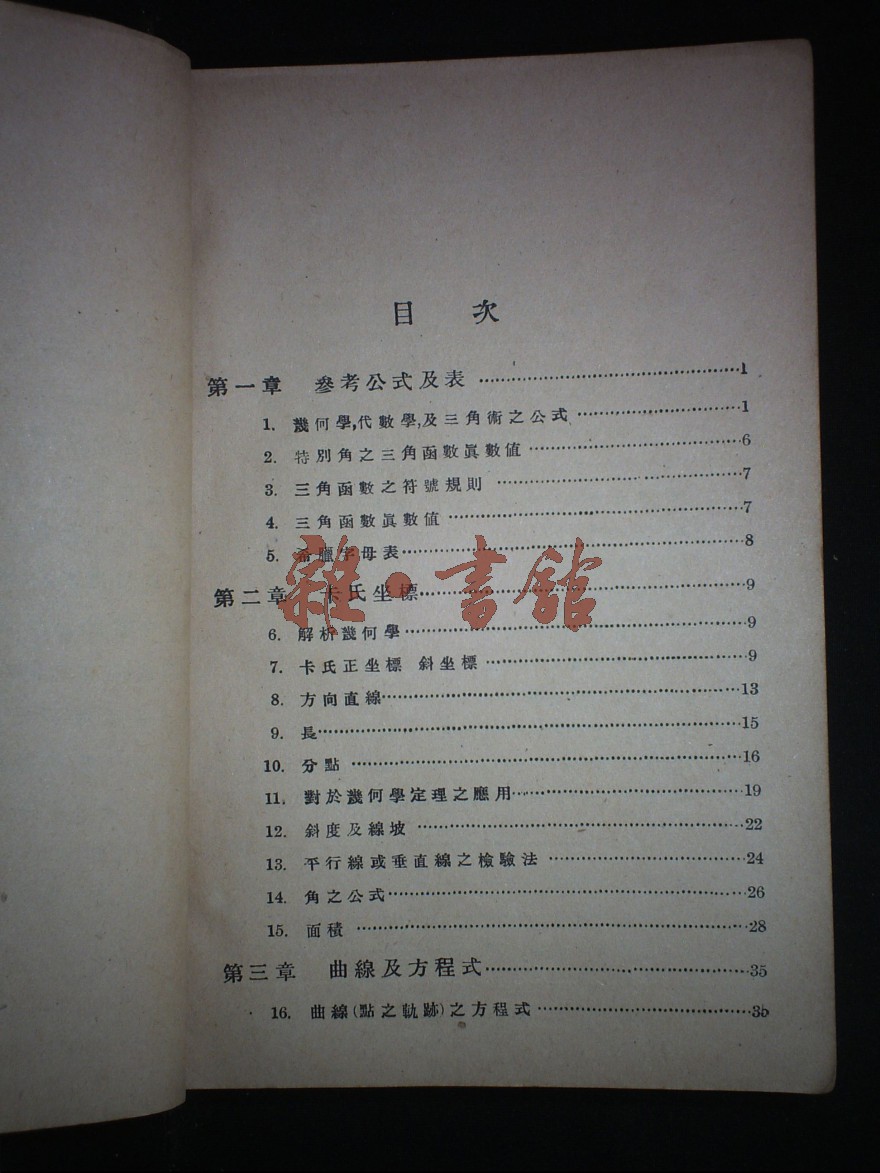 目 次
第一章 參考公式及表 ………………………………1
1. 幾何學,代數學,及三角術之公式 ……………………1
2. 特別角之三角函數眞數値 …………………………6
3. 三角函數之符號規則 ………………………………7
4. 三角函數眞數値 ……………………………………7
5. 希臘字母表 …………………………………………8
第二章 卡氏坐標 ……………………………………9
6. 解析幾何學 …………………………………………9
7. 卡氏正坐標 斜坐標 …………………………………9
8. 方向直線 ……………………………………………13
9. 長 ……………………………………………………15
10. 分點 ………………………………………………16
11. 對於幾何學定理之應用 ……………………………19
12. 斜度及線坡 ………………………………………22
13. 平行線或垂直線之檢驗法 …………………………24
14. 角之公式 …………………………………………26
15. 面積 ………………………………………………28
第三章 曲線及方程式 ………………………………35
16. 曲線(點之軌跡)之方程式 …………………………35
雜·書館